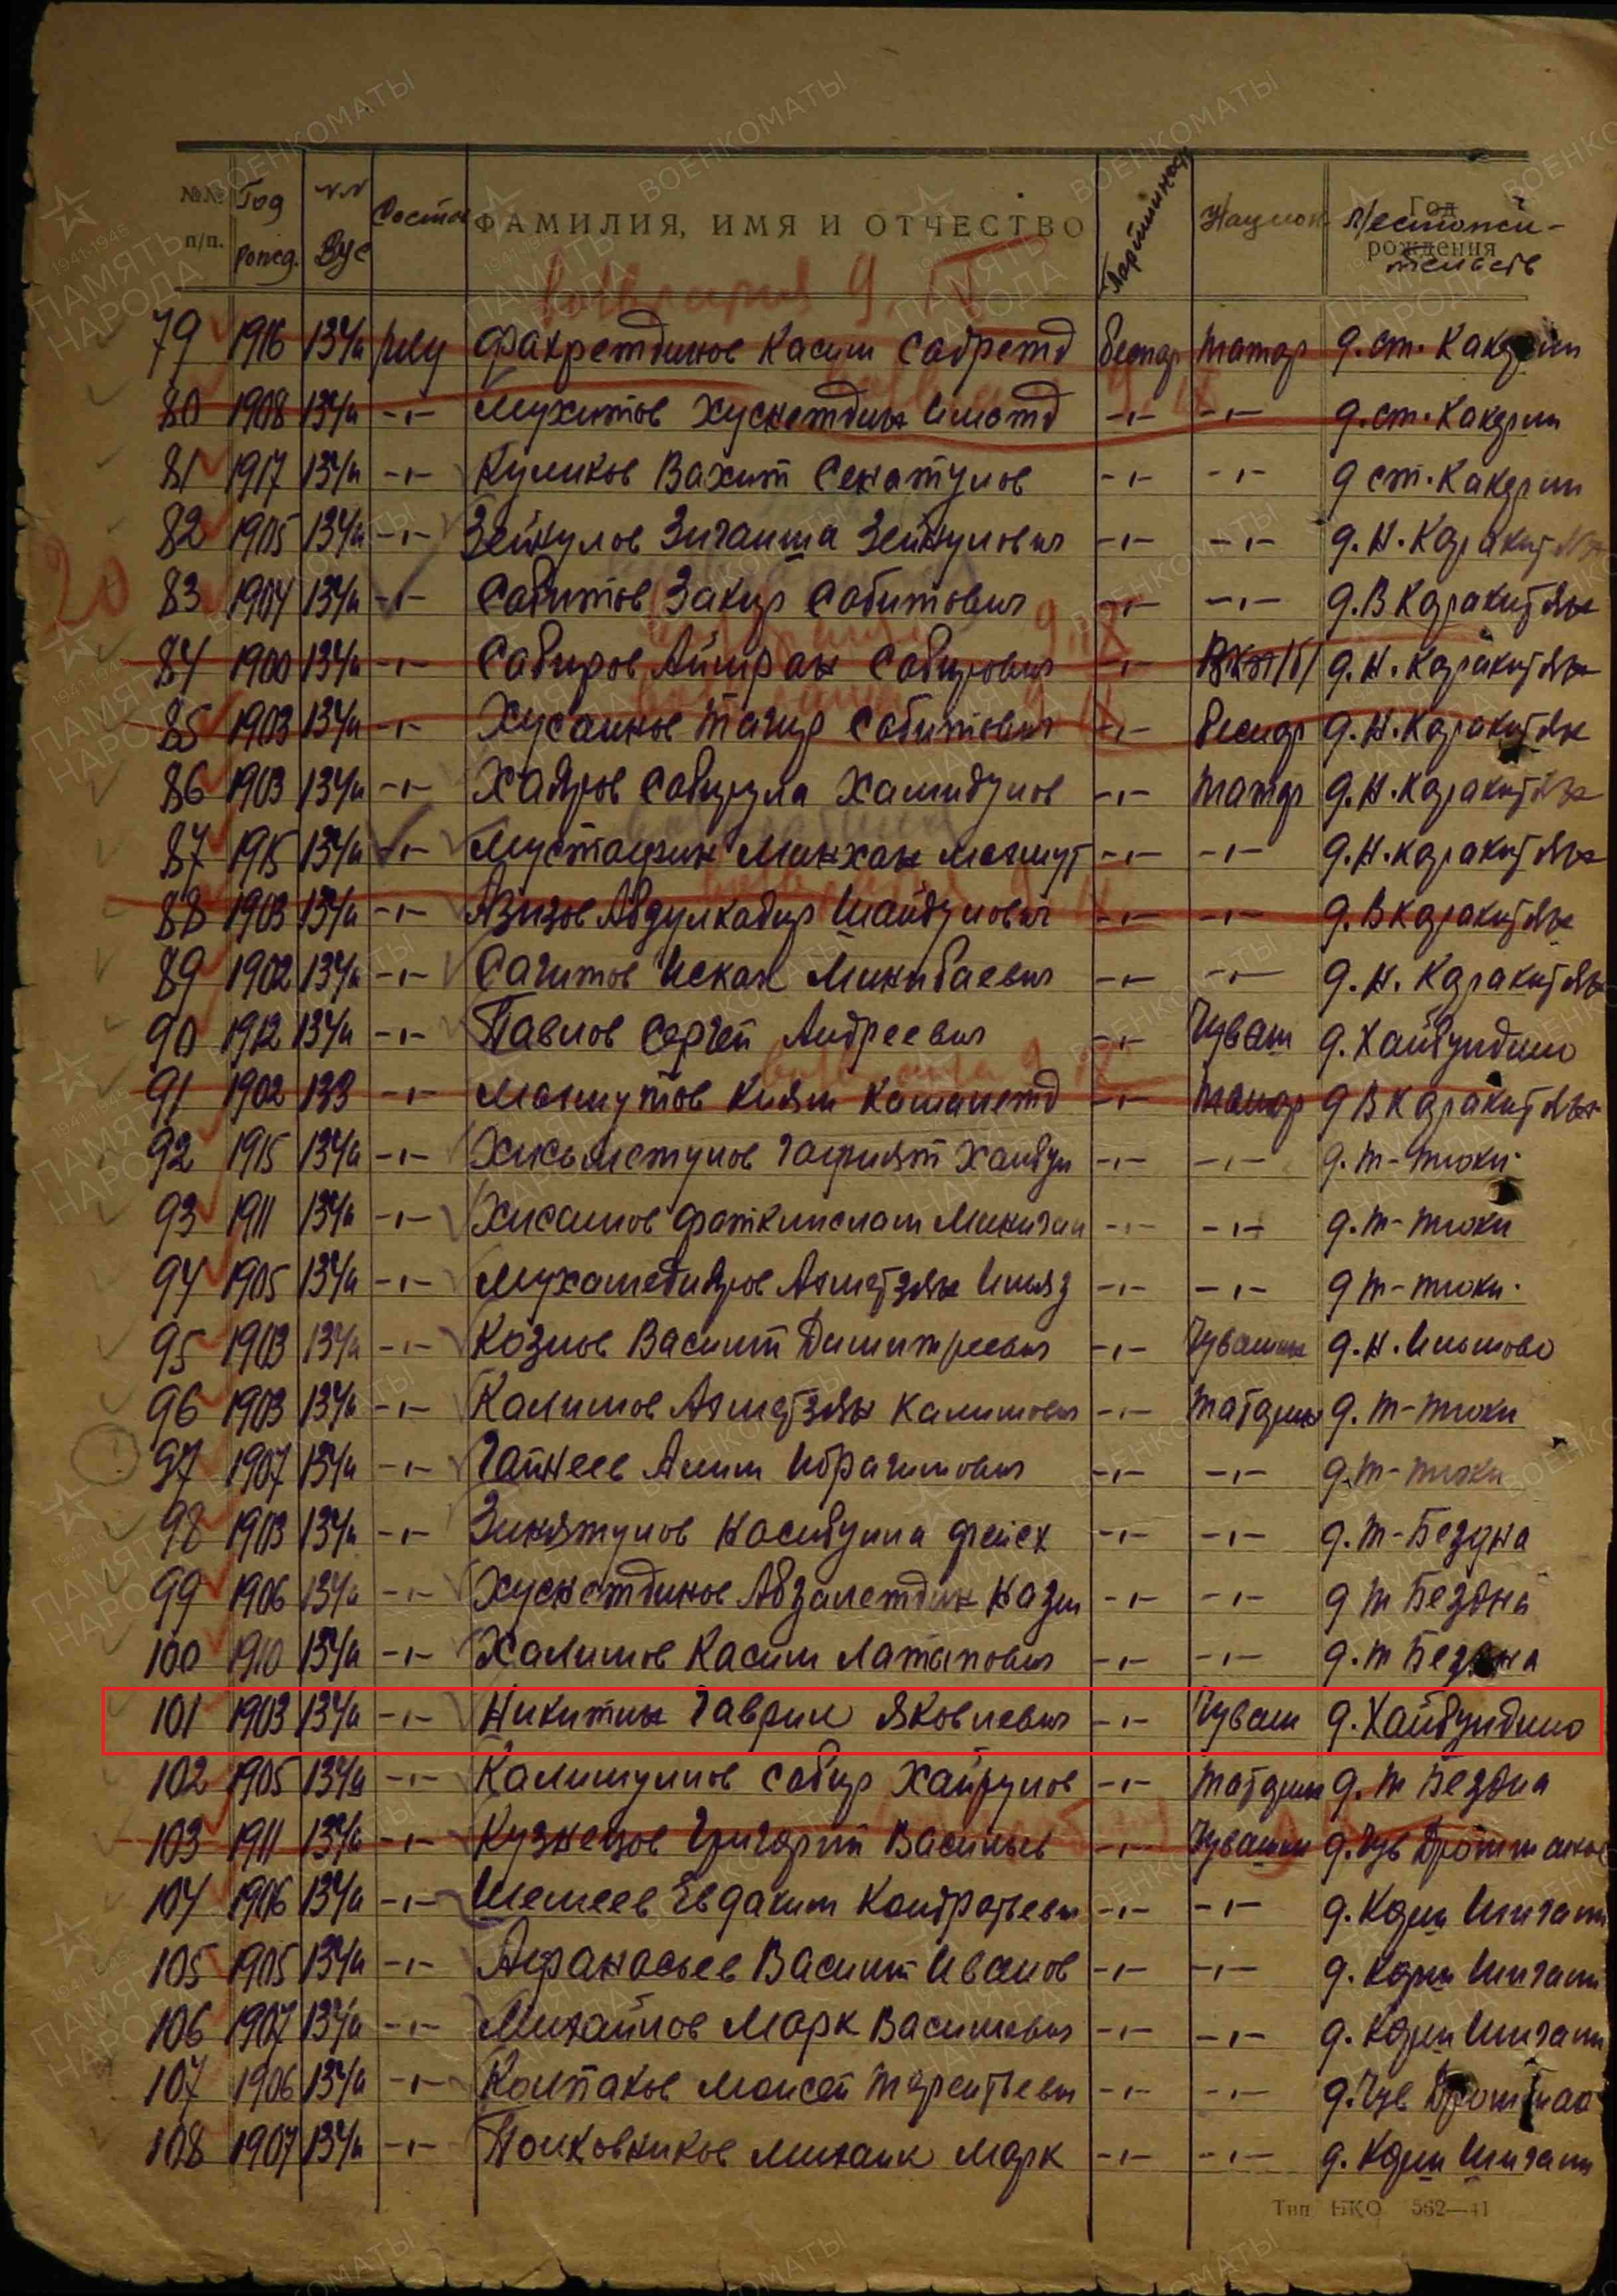 №№ п/п. Год рожд. №№ Вус Состав ФАМИЛИЯ, ИМЯ И ОТЧЕСТВО Партийность Национ. Год рождения Местожи-тельств
возвращен 9.IX
79 1916 134/а ряд Фахретдинов Касим Садретд беспар татар д.ст. Какерли
80 1908 134/а -"- Мухитов Хуснетдин -"- -"- д.ст. Какерли
81 1917 134/а -"- Куликов Вахит -"- -"- д ст. Какерли
82 1905 134/а -"- Зейнулов Зиганша Зейнулович -"- -"- д. Н. Каракит
20
83 1904 134/а -"- Сабитов Закир Сабитович -"- -"- д. В Каракитян
84 1900 134/а -"- Сабиров Сабирович -"- ВКП/б/ д. Н. Каракитян
85 1903 134/а -"- Хусаинов Тагир Сабитович -"- беспар д. Н. Каракитян
86 1903 134/а -"- Хабиров Сабирула Хамидулов -"- татар д. Н. Каракитян
87 1915 134/а -"- Мустафин Минхан Махмут -"- -"- д. Н. Каракитян
88 1903 134/а -"- Азизов Абдулкабир Шайдулович -"- -"- д. В Каракитян
89 1902 134/а -"- Сагитов Искак Миникаевич -"- -"- д. Н. Каракитян
90 1912 134/а -"- Павлов Сергей Андреевич -"- Чуваш д. Хайбулдино
91 1902 133 -"- Махмутов Киям Камалетд -"- татар д В Каракитян
92 1915 134/а -"- Хисаметулов Гафият Хайбул -"- -"- д. Т-Тюки
93 1911 134/а -"- Хисамов Фаткислам Минигал -"- -"- д. Т-Тюки
94 1905 134/а -"- Мухамедияров Ахметзян Ильяз -"- -"- д Т-Тюки
95 1903 134/а -"- Козлов Василий Димитреевич -"- Чувашин д. Н. Ильмово
96 1903 134/а -"- Калимов Ахметзян Калимович -"- татарин д. Т-Тюки
97 1907 134/а -"- Гайнеев Алим Ибрагимович -"- -"- д. Т-Тюки
98 1903 134/а -"- Зинятулов Насибулла Фейск -"- -"- д. Т-Бездна
99 1906 134/а -"- Хуснетдинов Абзалетдин Казы -"- -"- д Т Бездна
100 1910 134/а -"- Халимов Касим Латыпович -"- -"- д. Т Бездна
101 1903 134/а -"- Никитин Гаврил Яковлевич -"- Чуваш д. Хайбулдино
102 1905 134/а -"- Калимулов Сабир Хайрулов -"- татарин д. Т Бездна
103 1911 134/а -"- Кузнецов Григорий Васильев -"- Чувашин д. Чув Дрожжаное
104 1906 134/а -"- Шемеев Евдаким Кондратьевич -"- -"- д. Корш Шигали
105 1905 134/а -"- Афанасьев Василий Иванов -"- -"- д. Корш Шигали
106 1907 134/а -"- Михайлов Марк Васильевич -"- -"- д. Корш Шигали
107 1906 134/а -"- Колпаков Моисей Терентьевич -"- -"- д. Чув
108 1907 134/а -"- Полковников Михаил Марк -"- -"- д. Корш Шигали
Тип НКО 562—41
ПАМЯТЬ НАРОДА 1941-1945 ВОЕНКОМАТЫ